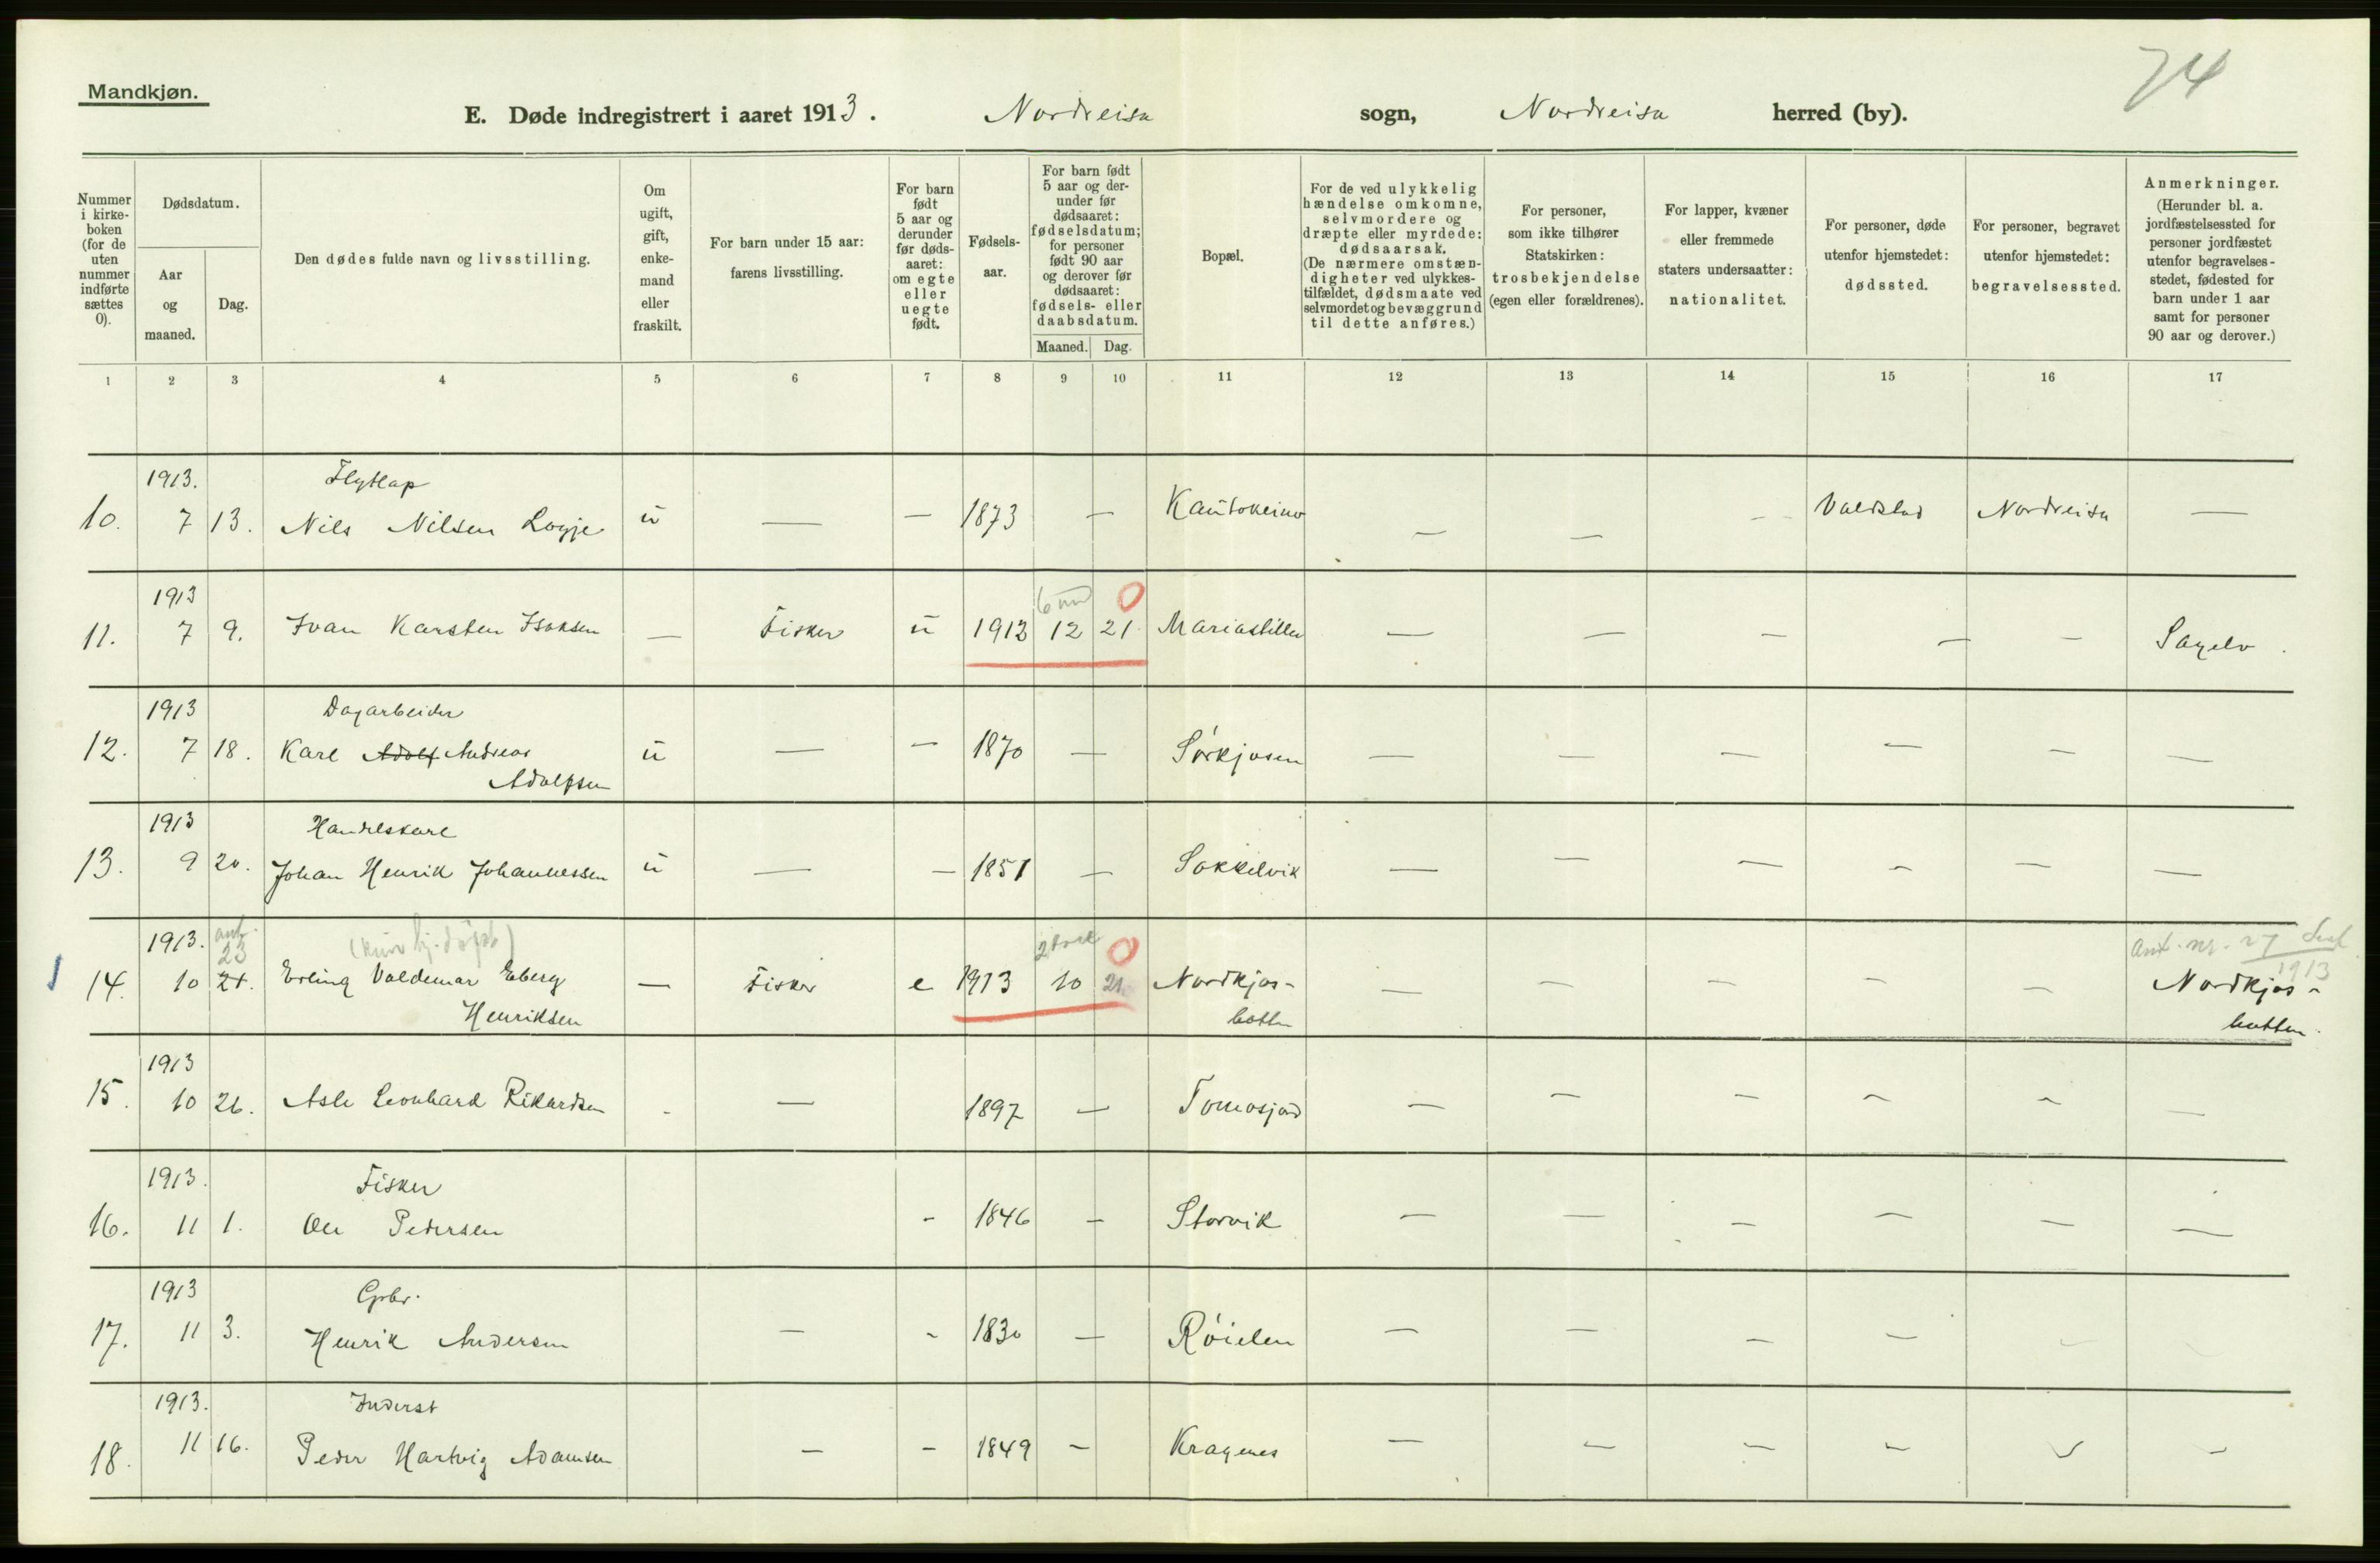 74
Mandkjøn.
E. Døde indregistrert i aaret 1913. Nordreisa sogn, Nordreisa herred (by).
Nummer i kirke-boken (for de uten nummer indførte sættes 0).
Dødsdatum.
Aar og maaned.
Dag.
Den dødes fulde navn og livsstilling.
Om ugift, gift, enke-mand eller fraskilt.
For barn under 15 aar: farens livsstilling.
For barn født 5 aar og derunder før døds-aaret: om egte eller uegte født.
Fødsels-aar.
For barn født 5 aar og der-under før dødsaaret: fødselsdatum; for personer født 90 aar og derover før dødsaaret: fødsels- eller daabsdatum.
Maaned. Dag.
Bopæl.
For de ved ulykkelig hændelse omkomne, selvmordere og dræpte eller myrdede: dødsaarsak. (De nærmere omstæn-digheter ved ulykkes-tilfældet, dødsmaate ved selvmordet og bevæggrund til dette anføres.)
For personer, som ikke tilhører Statskirken: trosbekjendelse (egen eller forældrenes).
For lapper, kvæner eller fremmede staters undersaatter: nationalitet.
For personer, døde utenfor hjemstedet: dødssted.
For personer, begravet utenfor hjemstedet: begravelsessted.
Anmerkninger. (Herunder bl. a. jordfæstelsessted for personer jordfæstet utenfor begravelses-stedet, fødested for barn under 1 aar samt for personer 90 aar og derover.)
1 2 3 4 5 6 7 8 9 10 11 12 13 14 15 16 17
1913. Flytlap
10. 7 13. Nils Nilsen Logje ū — — 1873 — Kautokeino — — — Nordreisa —
1913 6 md 0
11. 7 9. Ivan Karsten Isaksen — Fisker ū 1912 12 21 — — — — — Sagelv.
1913 Dagarbeider
12. 7 18. Karl Adolf Andreas ū — — 1870 — Sørkjosen — — — — — —
Adolfsen
1913 Handelskarl
13. 9 20. Johan Henrik Johannessen ū — — 1851 — Sokkelvik — — — — — —
1913. 23 0 1913
14. 10 21. Erling Valdemar Eberg — Fisker e 1913 10 21 Nordkjos- — — — — — Nordkjos-
Henriksen botten botten.
1913
15. 10 26. Asle Leonhard Rikardsen - — 1897 — — — — — — —
1913. Fisker
16. 11 1. Ole Pedersen - 1846 — Storvik — — — — — —
1913 Gbr.
17. 11 3. Henrik Andersen — - 1830 — Røielen — — — — — —
1913. Inderst
18. 11 16. Peder Hartvig Adamsen — — 1849 — Kragenes — — — — — —